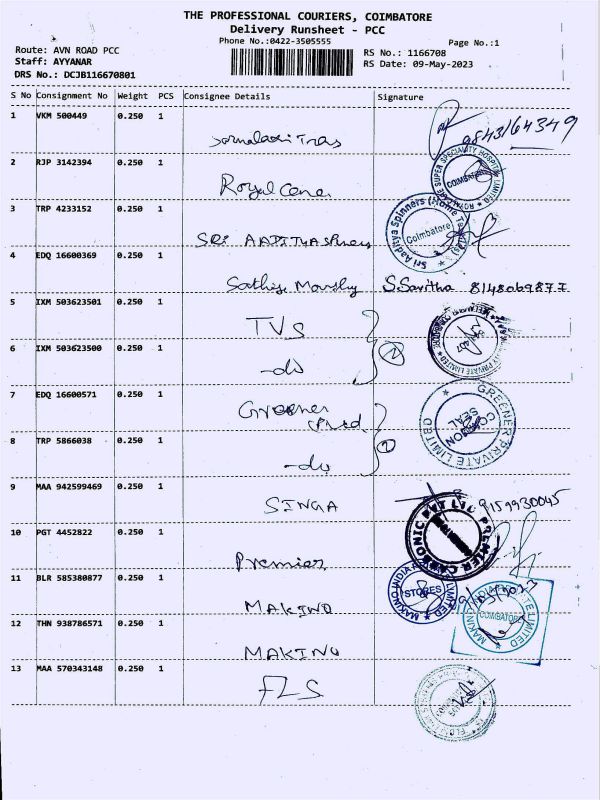 THE PROFESSIONAL COURIERS, COIMBATORE
Delivery Runsheet - PCC
Phone No.:0422-3505555
Page No.:1
Route: AVN ROAD PCC
Staff: AYYANAR
DRS No.: DCJB116670801
RS No.: 1166708
RS Date: 09-May-2023
S No Consignment No Weight PCS Consignee Details Signature
1 VKM 500449 0.250 1
9843164349
2 RJP 3142394 0.250 1
Royal Care
ROYAL CARE SUPER SPECIALITY HOSPITAL LIMITED COIMBATORE
3 TRP 4233152 0.250 1
SRI AADITYA
Sri Aaditya Spinners (Home Textiles) Coimbatore
4 EDQ 16600369 0.250 1
S. Savitha 8148069877
5 IXM 503623501 0.250 1
TVS
6 IXM 503623500 0.250 1
-do
2
PRIVATE LIMITED
7 EDQ 16600571 0.250 1
Greener
GREENER PRIVATE LIMITED COMMON SEAL
8 TRP 5866038 0.250 1
-do
9 MAA 942599469 0.250 1
SINGA
9159930045
10 PGT 4452822 0.250 1
Premier
PREMIER CARBONIC PVT LTD
11 BLR 585380877 0.250 1
MAKINO
MAKINO INDIA PRIVATE LIMITED STORES
12 THN 938786571 0.250 1
MAKINO
MAKINO INDIA PRIVATE LIMITED COIMBATORE
13 MAA 570343148 0.250 1
FLS